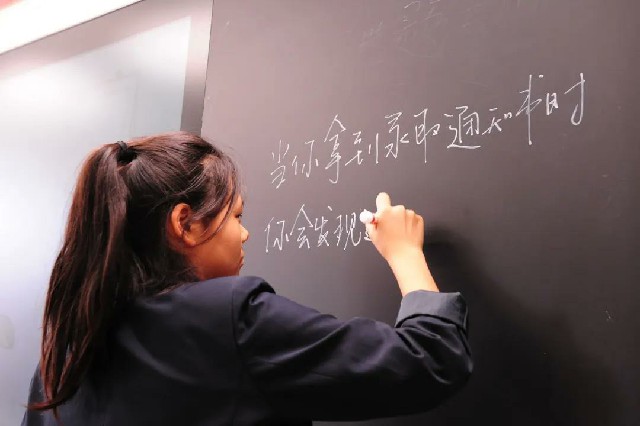 当你拿到录取通知书时
你会发现